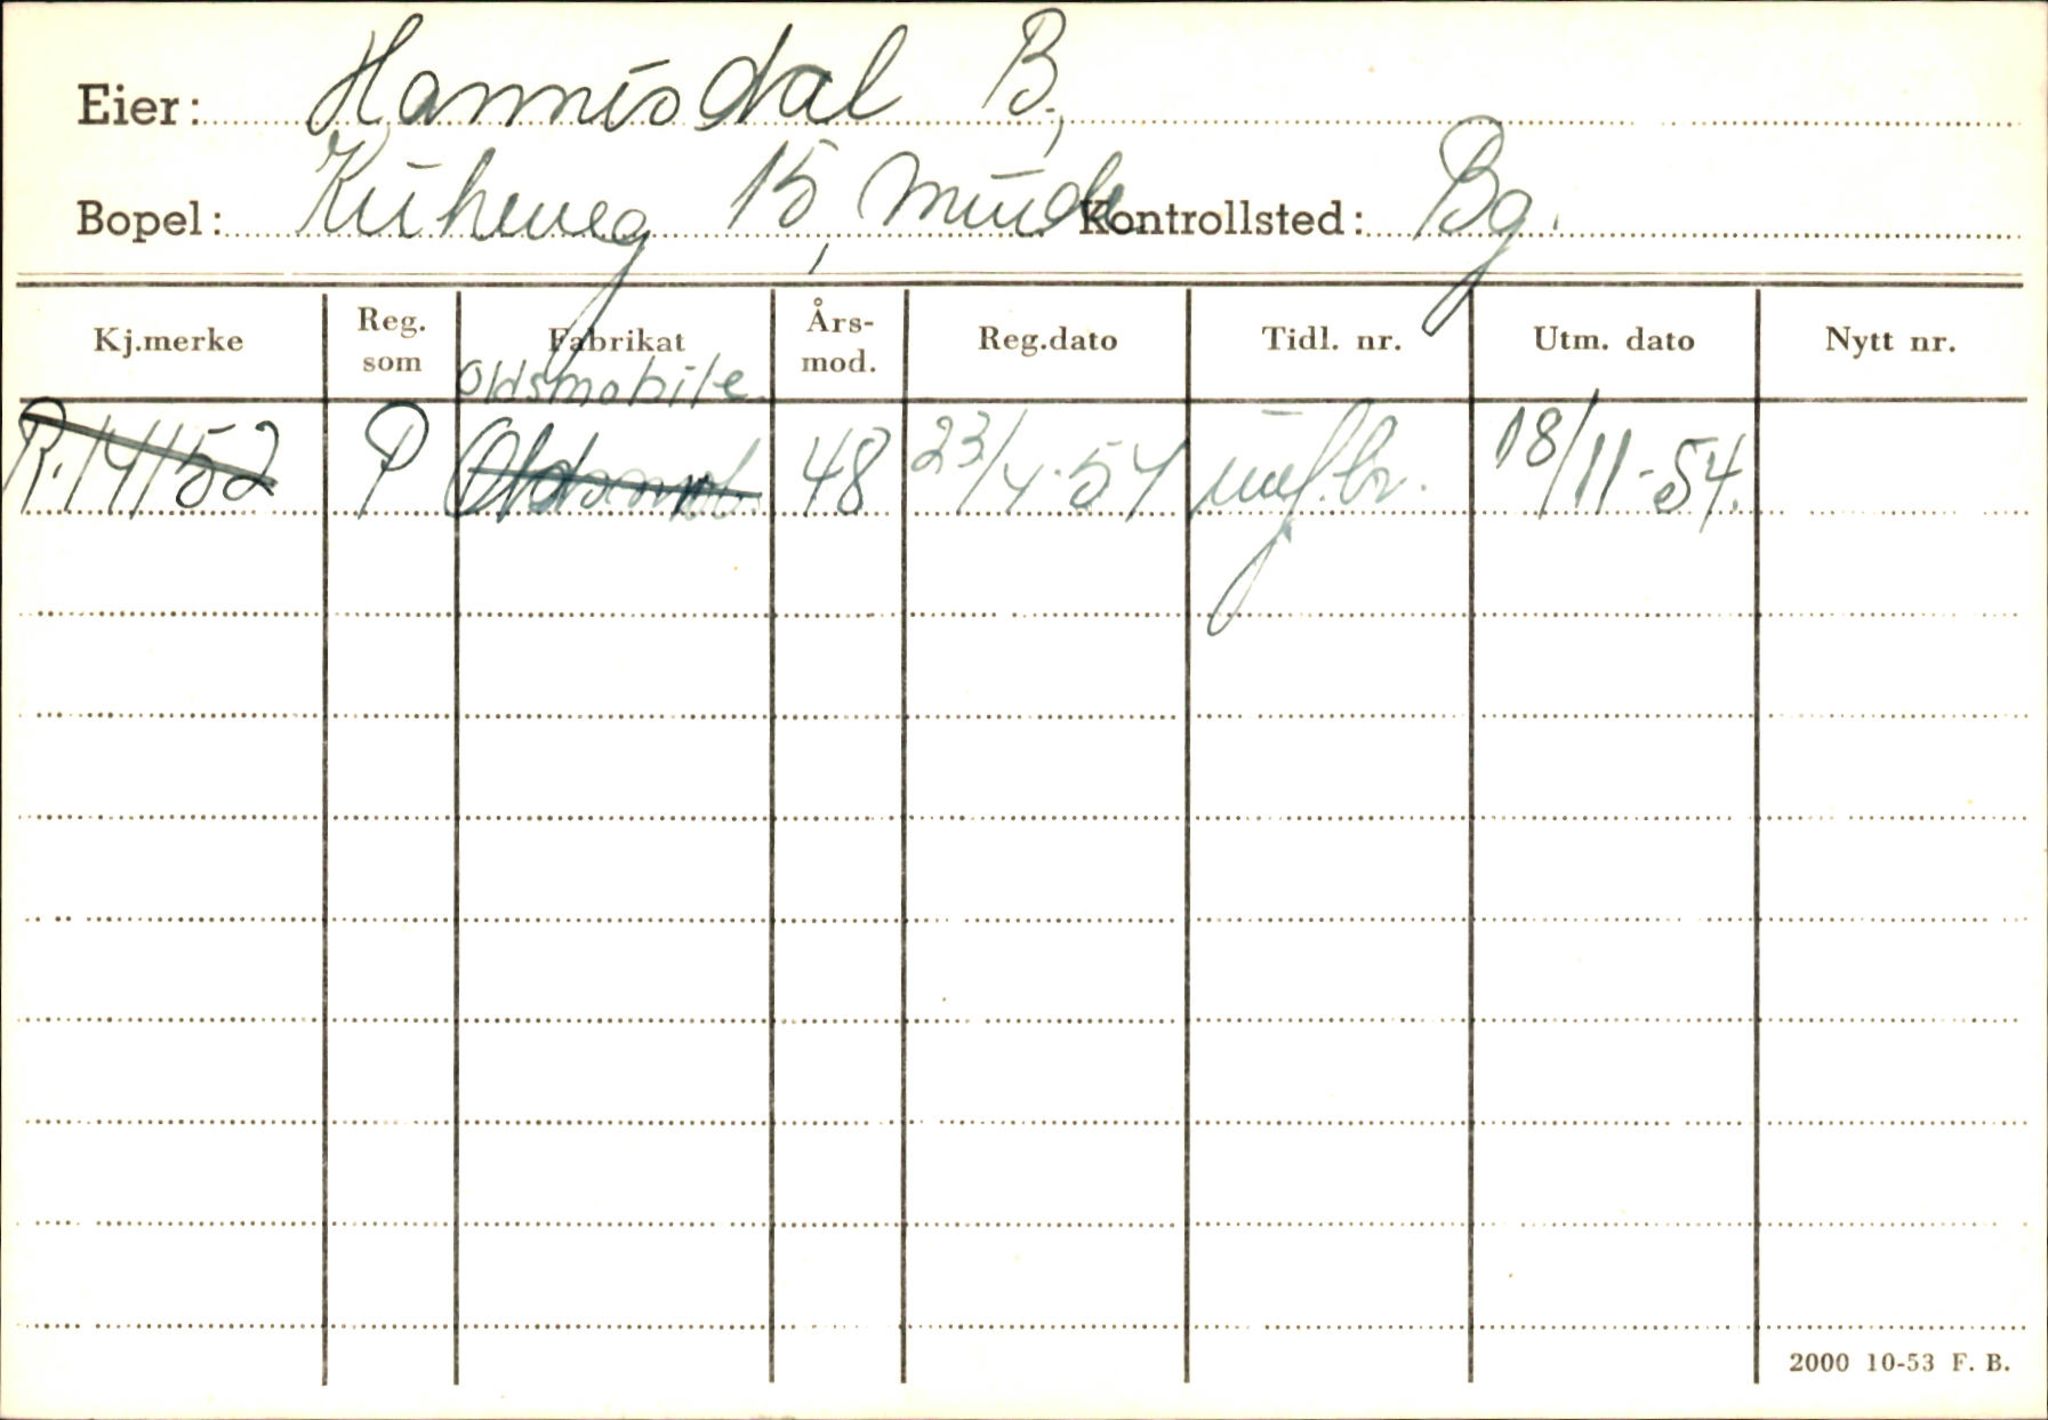 Eier: Hannisdal B.,
Bopel: Kirkeveg 15, Minde Kontrollsted: Bg.
Kj.merke Reg. som Fabrikat Års-mod. Reg.dato Tidl. nr. Utm. dato Nytt nr.
Oldsmobile
R.14152 P Oldsmob. 48 23/4-54 uuf.br. 18/11-54.
2000 10-53 F. B.